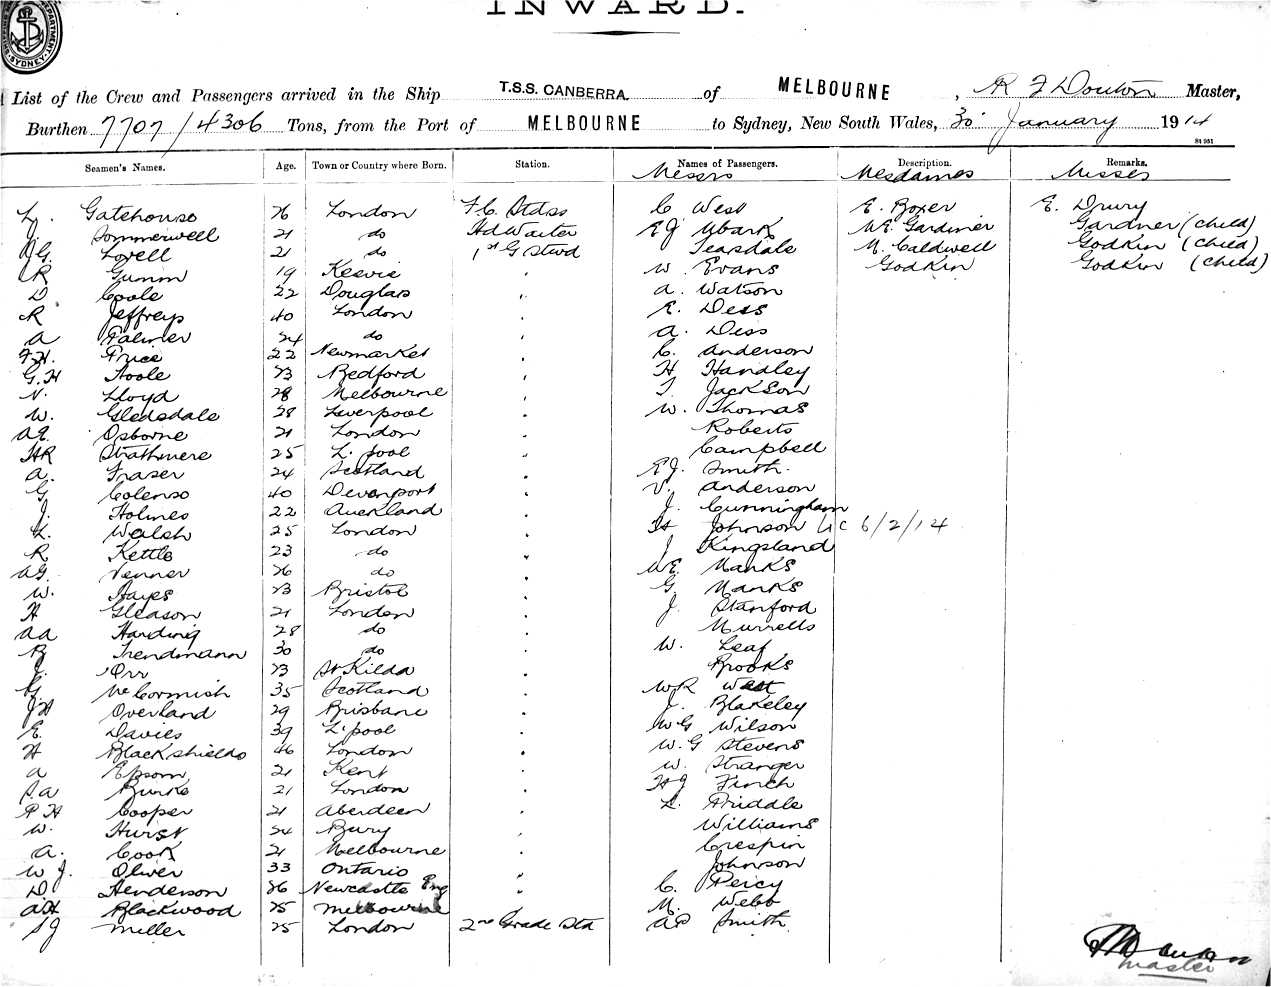 INWARD.
DEPARTMENT. SYDNEY.
List of the Crew and Passengers arrived in the Ship T.S.S. CANBERRA of MELBOURNE, Master,
Burthen 7707/4306 Tons, from the Port of MELBOURNE to Sydney, New South Wales, 30 January 1914
Seamen's Names. Age. Town or Country where Born. Station. Names of Passengers. Description. Remarks.
Messrs Mesdames Misses
L. Gatehouse 26 London C West E. Boxer E. Drury
J. Sommerwell 21 do Hd Waiter EJ Ubark WE Gardiner Gardner (child)
Lovell 21 do 1st G Stwd Teasdale M. Caldwell Godkin (child)
R Gumm 19 W. Evans Godkin Godkin (child)
D Coole 22 Douglas A. Watson
R Jeffreys 40 London E. Dess
A Palmer 24 do A. Dess
F.H. Price 22 Newmarket C. Anderson
G.H Hoole 23 Bedford H Handley
N. Lloyd 28 Melbourne T. Jackson
W. Gledsdale 28 Liverpool W. Thomas
AE. Osborne 21 London Roberts
HR Strathmere 25 L. pool Campbell
A. Fraser 24 Scotland EJ. Smith.
G Colenso 40 Devonport V. Anderson
J. Holmes 22 Auckland J. Cunningham
L. Walsh 25 London H Johnson 6/2/14
R Kettle 23 do J Kingsland
AG. Venner 26 do WE. Manks
W. Hayes 23 Bristol G Manks
H Gleason 21 London J. Stanford
AA Harding 28 do Murrells
B Trendmann 30 do W. Leaf
J. Orr 23 St Kilda Brooks
G McCormish 35 Scotland WR West
JH Overland 29 Brisbane J. Blakeley
E. Davies 39 L'pool WG Wilson
H Blackshields 46 London W.G Stevens
A Epsom 21 Kent W. Stranger
S.A Burke 21 London HJ Finch
P H Cooper 21 Aberdeen L. Priddle
W. Hurst 24 Bury Williams
A. Cook 21 Melbourne Crespin
W J. Oliver 33 Ontario Johnson
D Henderson 26 Newcastle Eng C. Percy
AH Blackwood 25 Melbourne M. Webb
SJ Miller 25 London 2nd Grade Std AP Smith
Master